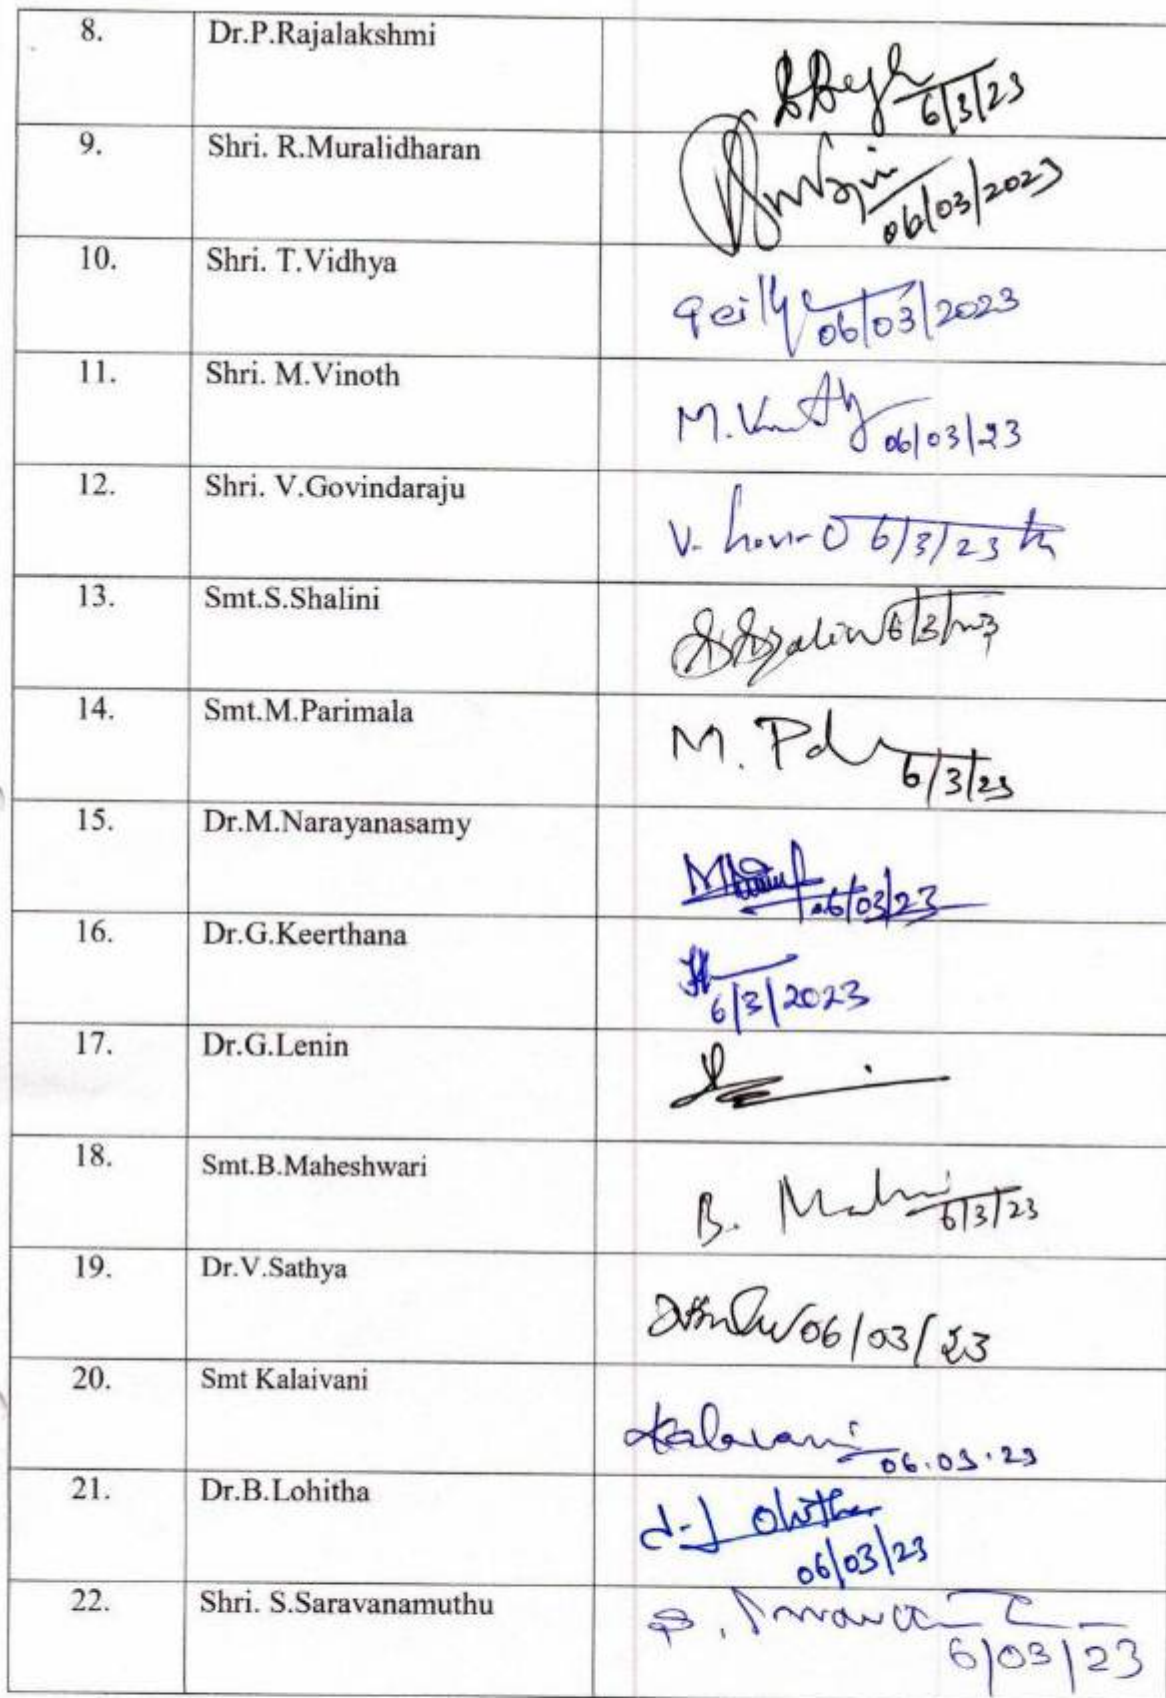 8. Dr.P.Rajalakshmi 6/3/23
9. Shri. R.Muralidharan 06/03/2023
10. Shri. T.Vidhya 06/03/2023
11. Shri. M.Vinoth M. 06/03/23
12. Shri. V.Govindaraju V. 6/3/23
13. Smt.S.Shalini 6/3/23
14. Smt.M.Parimala M. 6/3/23
15. Dr.M.Narayanasamy 06/03/23
16. Dr.G.Keerthana 6/3/2023
17. Dr.G.Lenin
18. Smt.B.Maheshwari B. 6/3/23
19. Dr.V.Sathya 06/03/23
20. Smt Kalaivani 06.03.23
21. Dr.B.Lohitha 06/03/23
22. Shri. S.Saravanamuthu 6/03/23